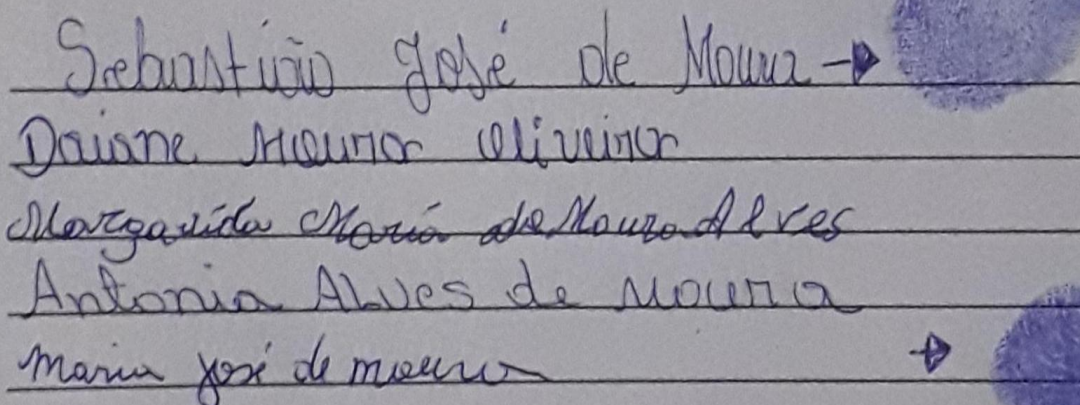 Sebastião José de Moura
Daiane Moura Oliveira
Margarida Maria de Moura Alves
Antonia Alves de Moura
Maria José de moura